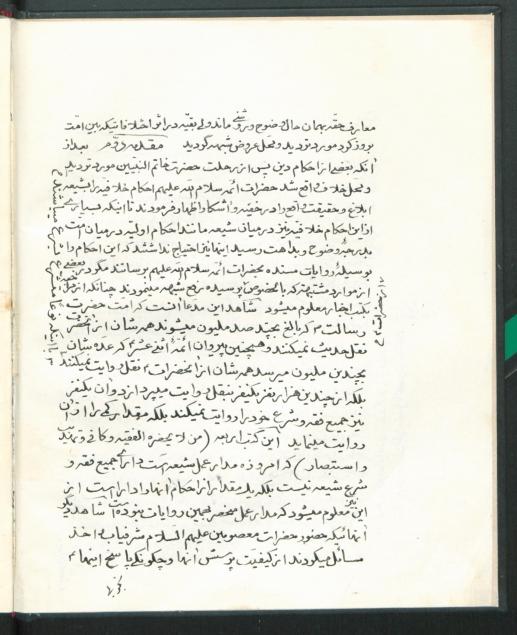 معارف حقه بهمان حال وضوح و روشنی ماند ولی بقیه در اثر اختلافاتیکه بین امت
بروز کرد مورد تردید و محل عروض شبهه گردید مقدمه دوم بعد از
آنکه بعضی از احکام دین پس از رحلت حضرت خاتم النبیین مورد تردید
و محل خلاف واقع شد حضرات ائمه سلام الله علیهم احکام خلافیه را بشیعه
ابلاغ و حقیقت واقع را در خفیه و آشکار اظهار فرمودند تا اینکه بسیاری
از این احکام خلافیه نیز در میان شیعه مانند احکام اولیه در میان امت
بدرجه وضوح و بداهت رسید اینها نیز احتیاج نداشتند که این احکام را
بوسیله روایات مسنده بحضرات ائمه سلام الله علیهم برسانند مگر در بعضی
از موارد مشتبه که بالخصوص پرسیده رفع شبهه مینمودند چنانکه از مراجعه
بکتب اخبار معلوم میشود شاهد این مدعا آنست که امت حضرت
رسالت ص که بالغ بچند صد ملیون میشوند همه‌شان از آنحضرت
نقل حدیث نمیکنند و همچنین پیروان ائمه اثنی عشر ع که عده شان
بچندین ملیون میرسد همه شان از آنحضرات ع نقل روایت نمیکنند
بلکه از چندین هزار نفر یکنفر بنقل روایت میپردازد و آن یکنفر
نیز جمیع فقه و شرع خود را روایت نمیکند بلکه مقدار کمی را از آن
روایت مینماید این کتب اربعه (من لا یحضره الفقیه و کافی و تهذیب
و استبصار) که امروزه مدار عمل شیعه است دارای جمیع فقه و
شرع شیعه نیست بلکه یک مقدار از احکام آنها را داراست از
این نیز معلوم میشود که مدار عمل منحصر بهمین روایات نبوده است شاهد دیگر
آنهائیکه حضور حضرات معصومین علیهم السلام شرفیاب و اخذ
مسائل میکردند از کیفیت پرسش آنها و چگونگی پاسخ اینها ع